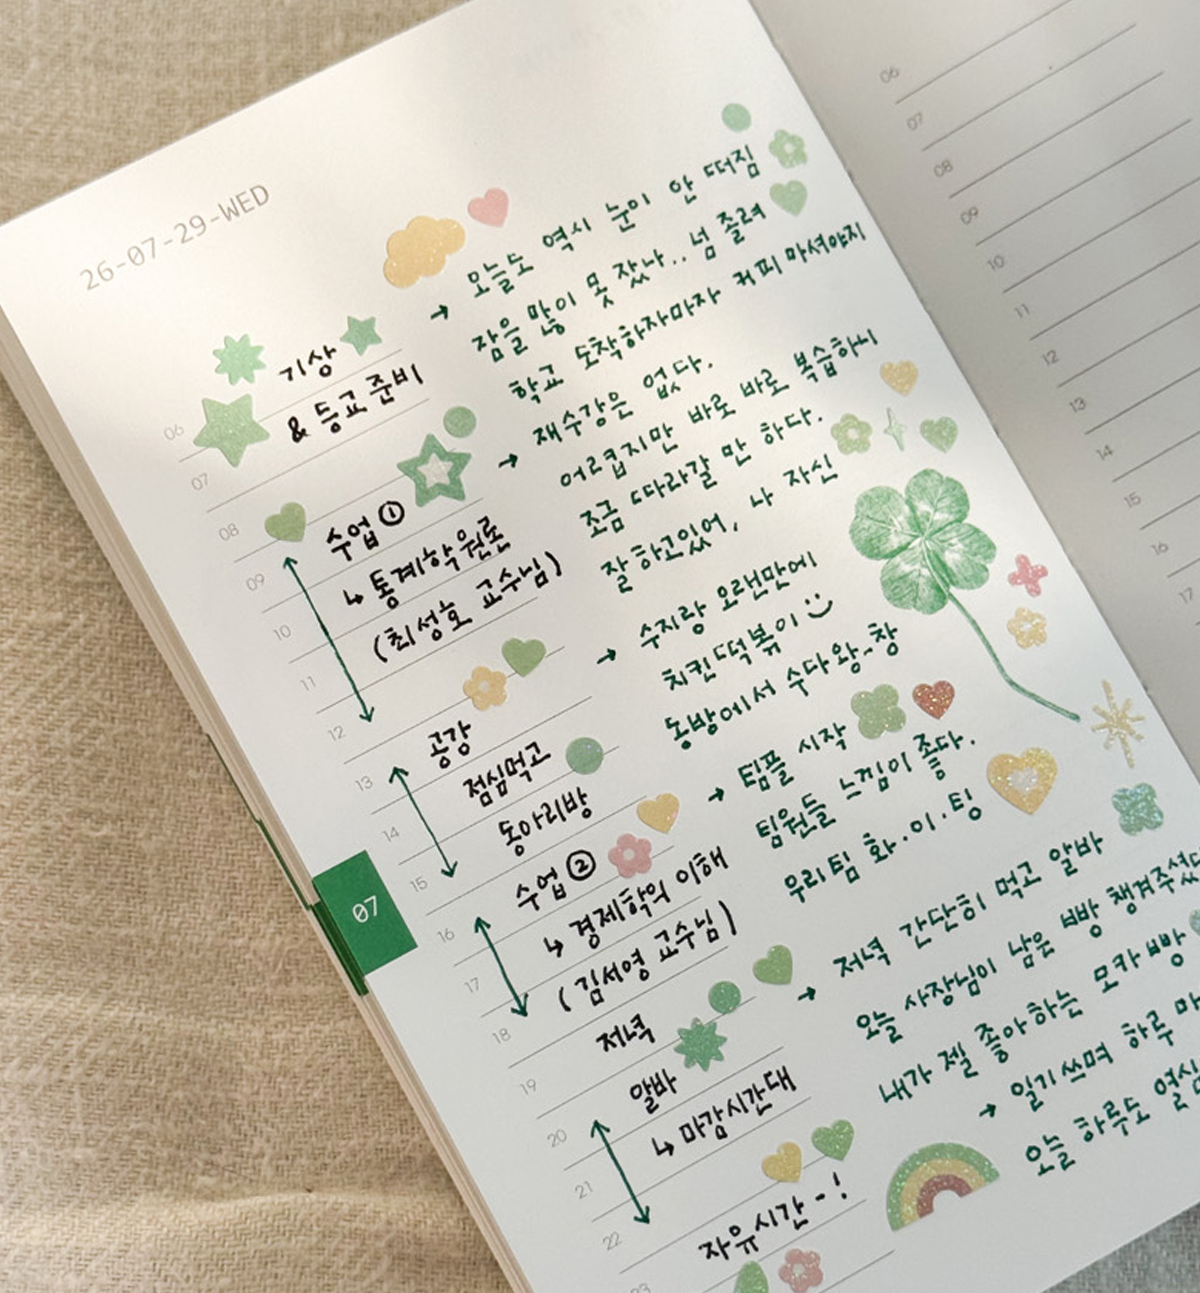 26-07-29-WED
기상
& 등교 준비
→ 오늘도 역시 눈이 안 떠짐
잠을 많이 못 잤나.. 넘 졸려
학교 도착하자마자 커피 마셔야지
수업 ①
↳ 통계학 원론
(최성호 교수님)
→ 재수강은 없다.
어렵지만 바로 바로 복습하니
조금 따라갈 만 하다.
잘 하고있어, 나 자신
공강
점심먹고
동아리방
→ 수지랑 오랜만에
치킨떡볶이
동방에서 수다 왕-창
수업 ②
↳ 경제학의 이해
(김서영 교수님)
→ 팀플 시작
팀원들 느낌이 좋다.
우리 팀 화·이·팅
저녁
알바
↳ 마감시간대
→ 저녁 간단히 먹고 알바
오늘 사장님이 남은 빵 챙겨주셨다
내가 젤 좋아하는 모카빵
자유시간-!
→ 일기 쓰며 하루 마
오늘 하루도 열심
06
07
08
09
10
11
12
13
14
15
16
17
18
19
20
21
22
23
07
06
07
08
09
10
11
12
13
14
15
16
17